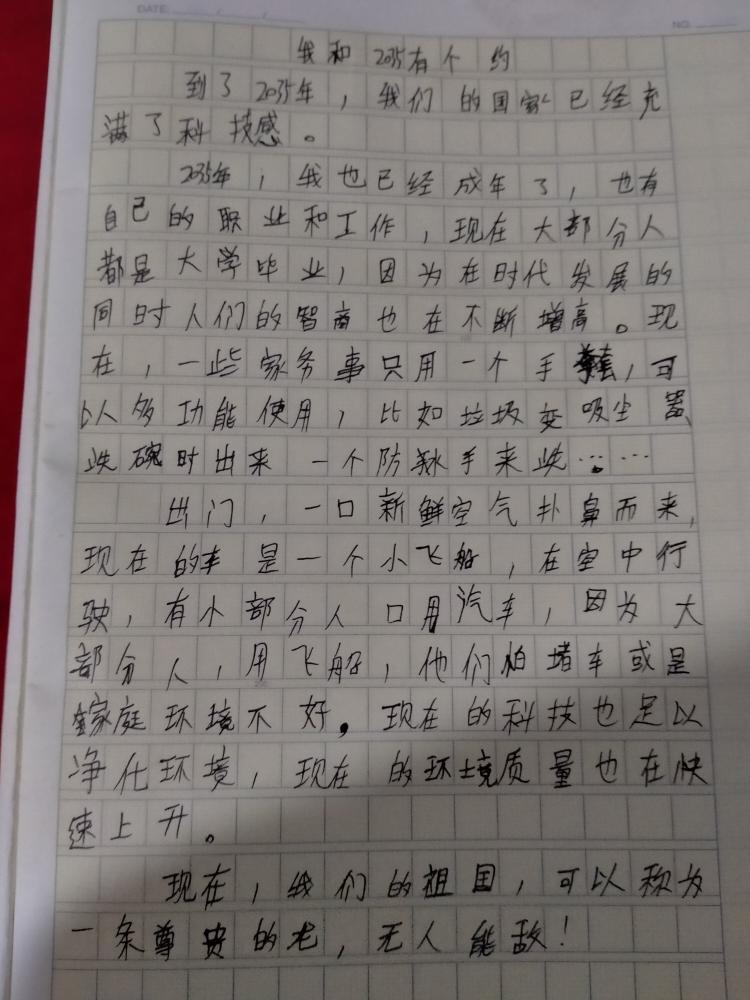 DATE: / /
NO.
我和2035有个约
到了2035年，我们的国家已经充
满了科技感。
2035年，我也已经成年了，也有
自己的职业和工作，现在大部分人
都是大学毕业，因为在时代发展的
同时人们的智商也在不断增高。现
在，一些家务事只用一个手套，可
以多功能使用，比如垃圾变吸尘器、
洗碗时出来一个防水手来洗……
出门，一口新鲜空气扑鼻而来，
现在的车是一个小飞船，在空中行
驶，有小部分人口用汽车，因为大
部分人，用飞船，他们怕堵车或是
家庭环境不好。现在的科技也足以
净化环境，现在的环境质量也在快
速上升。
现在，我们的祖国，可以称为
一条尊贵的龙，无人能敌！